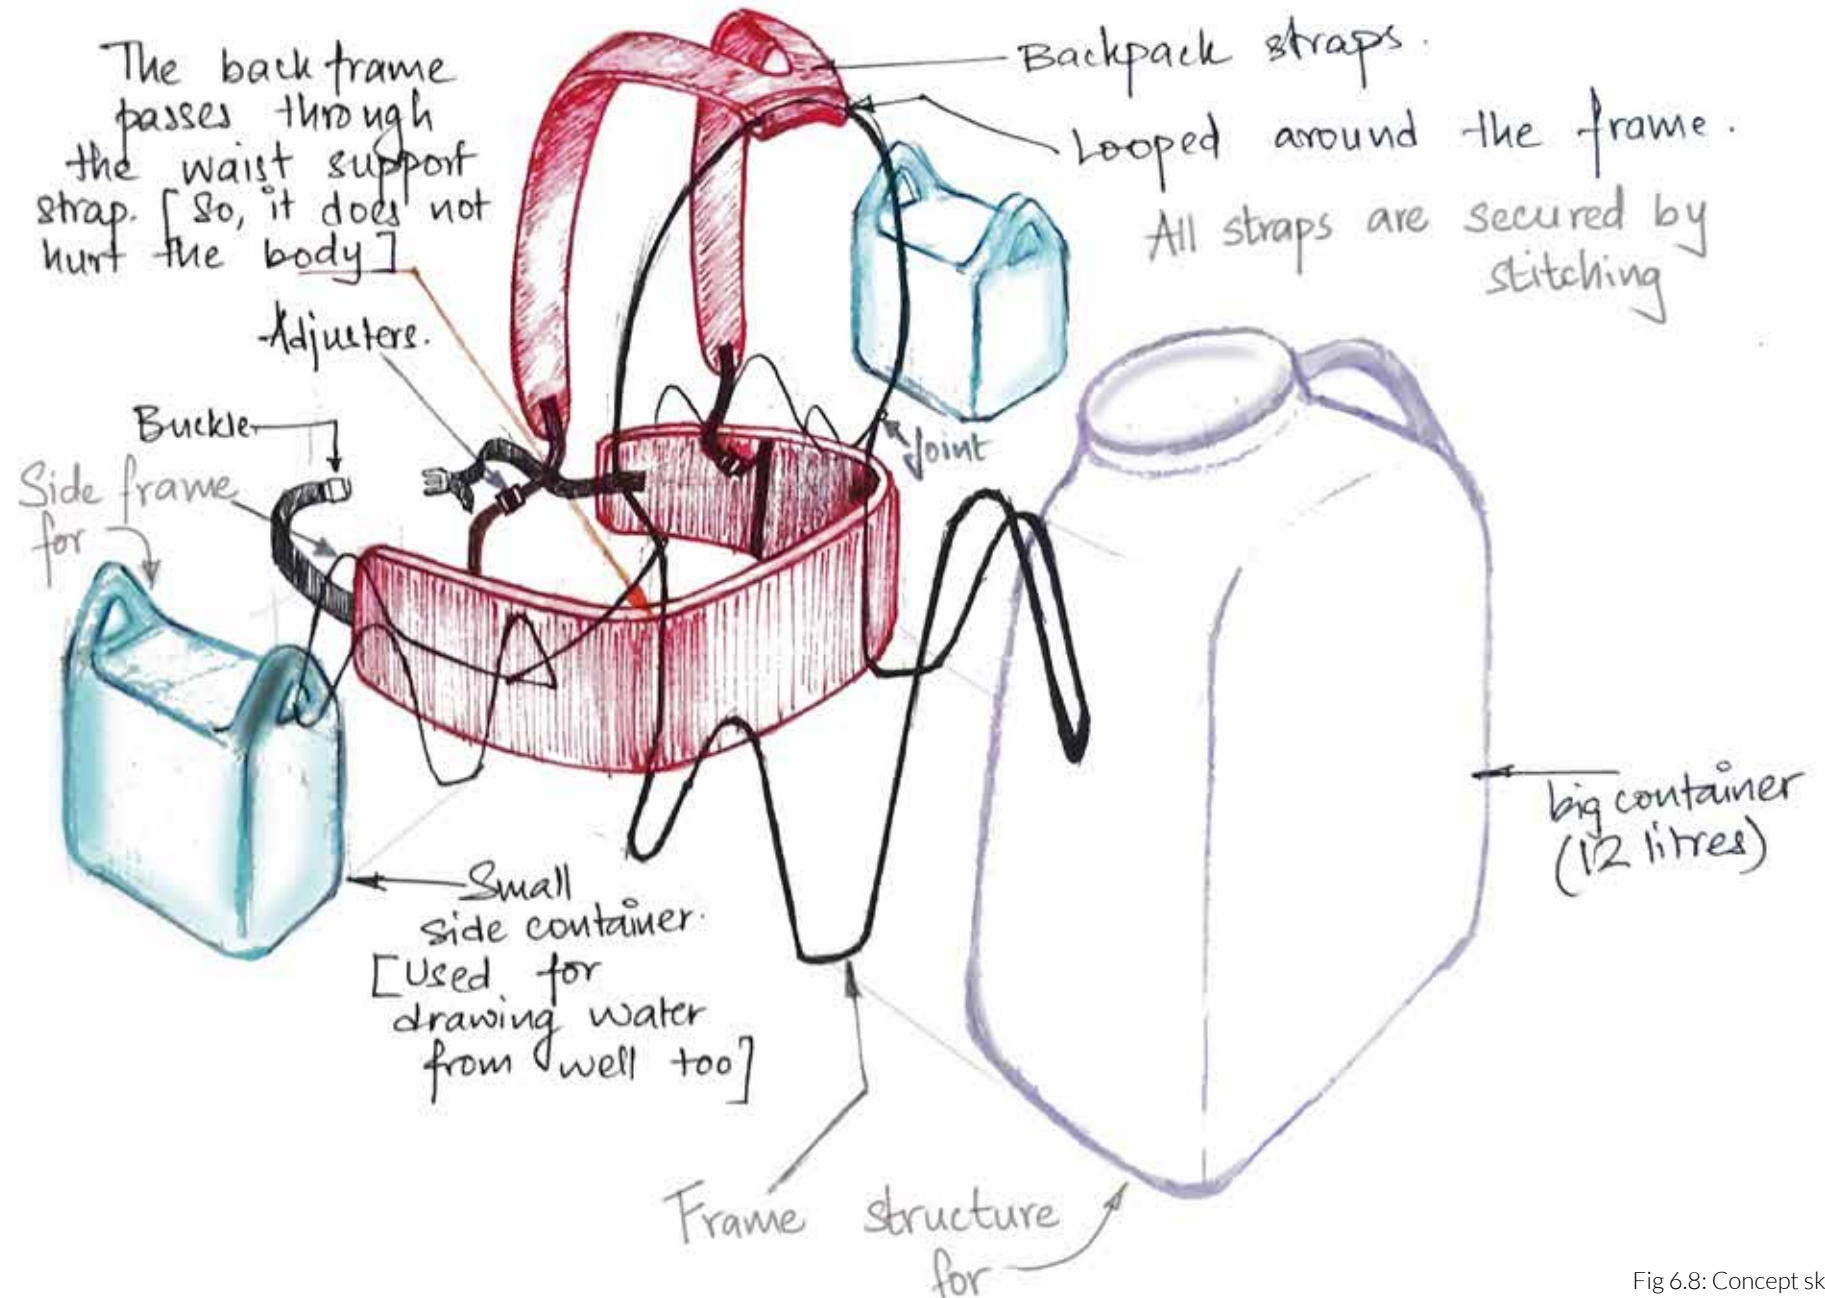 The back frame
passes through
the waist support
strap. [So, it does not
hurt the body]
Backpack straps.
Looped around the frame.
All straps are secured by
stitching
Adjusters.
Buckle
Joint
Side frame
for
big container
(12 litres)
Small
side container.
[Used for
drawing water
from well too]
Frame structure
for
Fig 6.8: Concept sk